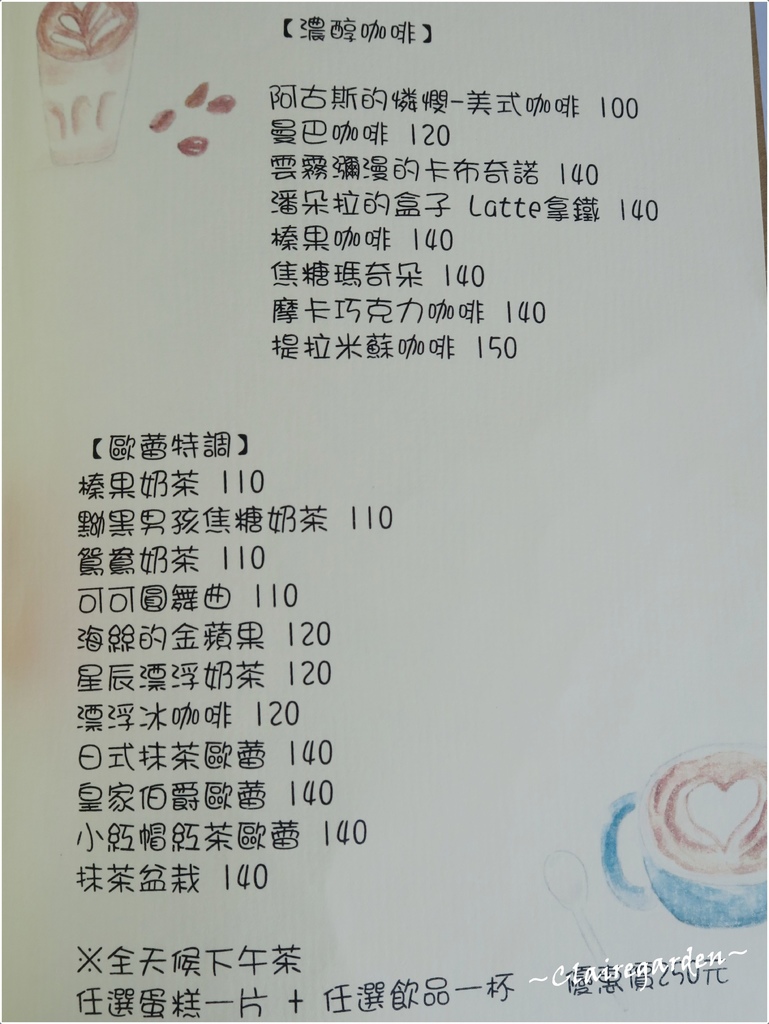 【濃醇咖啡】
阿古斯的憐憫-美式咖啡 100
曼巴咖啡 120
雲霧瀰漫的卡布奇諾 140
潘朵拉的盒子 Latte拿鐵 140
榛果咖啡 140
焦糖瑪奇朵 140
摩卡巧克力咖啡 140
提拉米蘇咖啡 150
【歐蕾特調】
榛果奶茶 110
黝黑男孩焦糖奶茶 110
鴛鴦奶茶 110
可可圓舞曲 110
海絲的金蘋果 120
星辰漂浮奶茶 120
漂浮冰咖啡 120
日式抹茶歐蕾 140
皇家伯爵歐蕾 140
小紅帽紅茶歐蕾 140
抹茶盆栽 140
※全天候下午茶
任選蛋糕一片 + 任選飲品一杯 優惠價250元
~Clairegarden~